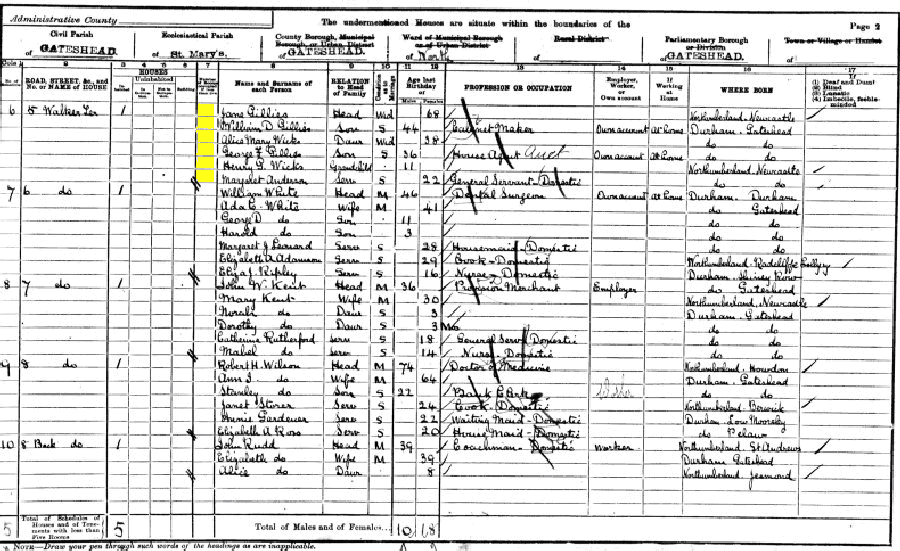 Administrative County
The undermentioned Houses are situate within the boundaries of the
Page
Civil Parish
of GATESHEAD.
Ecclesiastical Parish
of St. Mary's.
County Borough, Municipal Borough, or Urban District
of GATESHEAD.
Ward of Municipal Borough or of Urban District
of North
Rural District
of
Parliamentary Borough or Division
of GATESHEAD.
Town or Village or Hamlet
of
No. of
ROAD, STREET, &c., and No. or NAME of HOUSE
HOUSES
Uninhabited
Name and Surname of each Person
RELATION to Head of Family
Age last Birthday of
Males Females
PROFESSION OR OCCUPATION
Employer, Worker, or Own account
If Working at Home
WHERE BORN
If (1) Deaf and Dumb (2) Blind (3) Lunatic (4) Imbecile, feeble-minded
6 5 Walker Ter 1 Jane Gillies Head Wid 68 Northumberland - Newcastle
William D Gillies Son S 44 Cabinet Maker Own account At home Durham - Gateshead
Alice Mary Wicks Daur Wid 38 do do
George F Gillies Son S 36 House Agent Auct Own account At home do do
Henry G Wicks Grandchild 11 Northumberland - Newcastle
Margaret Anderson Serv S 22 General Servant - Domestic do do
7 6 do 1 William White Head M 46 Dental Surgeon Own account At home Durham - Durham
Ada E. White Wife M 41 do Gateshead
George D do Son 11 do do
Harold do Son 3 do do
Margaret J Leonard Serv S 28 Housemaid - Domestic do do
Elizabeth A Adamson Serv S 29 Cook - Domestic Northumberland - Radcliffe
Eliza J. Ripley Serv S 16 Nurse - Domestic Durham -
8 7 do 1 John W. Kent Head M 36 Provision Merchant Employer do Gateshead
Mary Kent Wife M 30 Northumberland, Newcastle
do Daur S 3 Durham - Gateshead
Dorothy do Daur S 3 do do
Catherine Rutherford Serv S 18 General Serv - Domestic do do
Mabel do Serv S 14 Nurse - Domestic do do
9 8 do 1 Robert H. Wilson Head M 74 Doctor of Medicine Northumberland - Howdon
Ann S. do Wife M 64 Durham - Gateshead
Stanley do Son S 22 Bank Clerk do do
Janet Storer Serv S 24 Cook - Domestic Northumberland - Berwick
Annie Gardener Serv S 22 Waiting Maid - Domestic Durham
Elizabeth A Ross Serv S 20 House Maid - Domestic do Pelaw
10 8 Back do 1 John Rudd Head M 39 Coachman - Domestic Worker Northumberland - St Andrews
Elizabeth do Wife M 39 Durham Gateshead
Alice do Daur 8 Northumberland Jesmond
5 Total of Schedules of Houses and of Tenements with less than Five Rooms 5 Total of Males and of Females... 10 18
NOTE—Draw your pen through such words of the headings as are inapplicable.